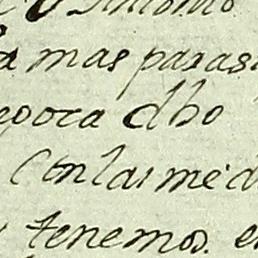 Antonio
mas paras
epoca dho
Con las med
tenemos. e